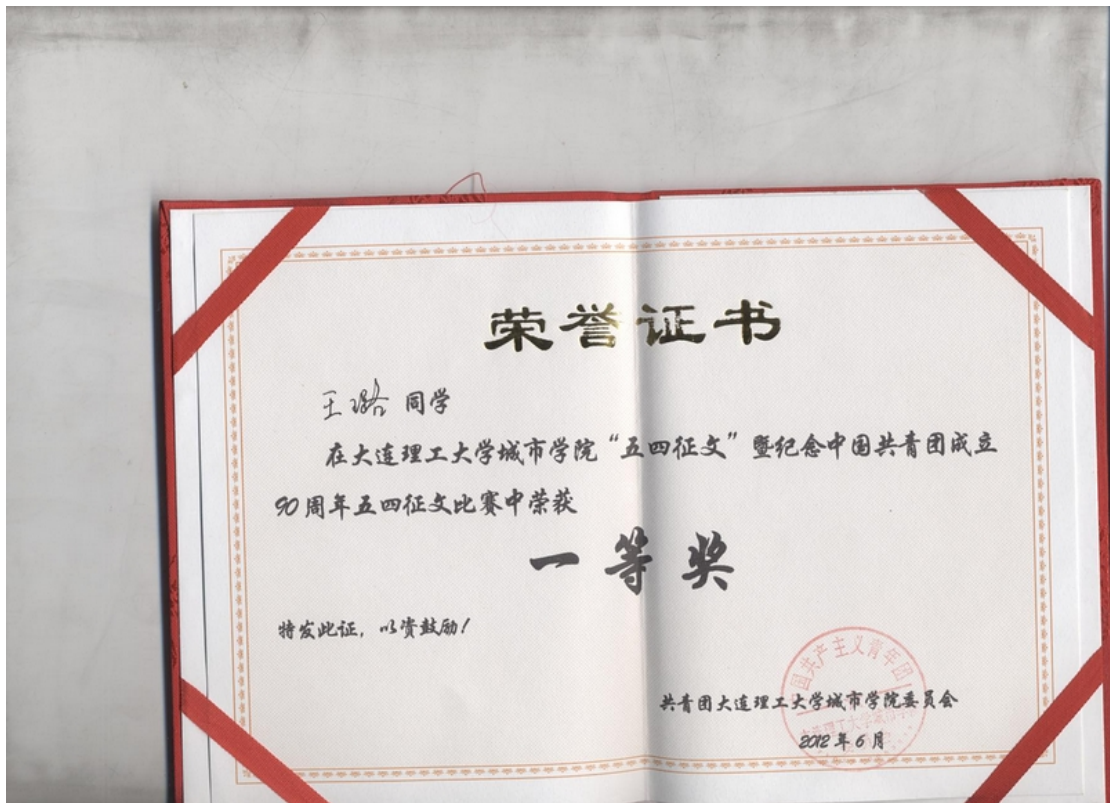 荣誉证书
王璐 同学
在大连理工大学城市学院“五四征文”暨纪念中国共青团成立
90周年五四征文比赛中荣获
一等奖
特发此证，以资鼓励！
共青团大连理工大学城市学院委员会
2012年6月
中国共产主义青年团